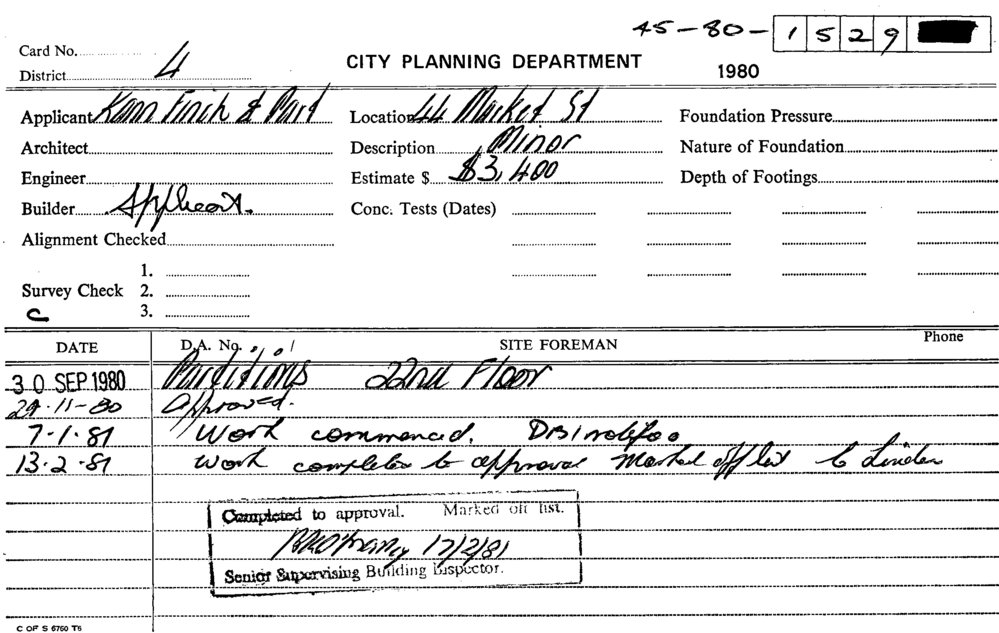 45-80-1529
Card No.
District 4
CITY PLANNING DEPARTMENT
1980
Applicant Kann Finch & Part Location 44 Market St Foundation Pressure
Architect Description Minor Nature of Foundation
Engineer Estimate $ $3,400 Depth of Footings
Builder Applicant. Conc. Tests (Dates)
Alignment Checked
1.
Survey Check 2.
C 3.
DATE D.A. No. SITE FOREMAN Phone
30 SEP 1980 Partitions 22nd Floor
24-11-80 Approved.
7-1-81 Work commenced.
13-2-81 Work completed to approval Marked off list
Completed to approval. Marked off list.
17/2/81
Senior Supervising Building Inspector.
C OF S 6760 T6